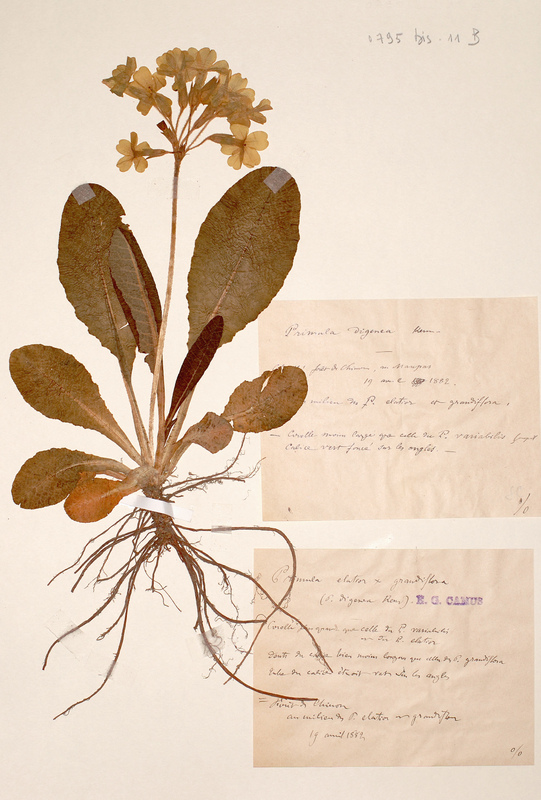 1795 bis - 11 B
Primula digenea Kern
forêt de Chinon, 
19 avril 1882.
milieu des P. elatior et grandiflora,
— Corolle moins large que celle du P. variabilis
Calice vert foncé sur les angles. —
%
Primula elatior x grandiflora
(P. digenea Kern.). E. G. CAMUS
Corolle plus grande que celle du P. variabilis
ou du P. elatior
bien moins longues que celles du P. grandiflora
Tube du calice étroit vert les angles
= Forêt de Chinon
au milieu des P. elatior et grandiflora
19 avril 1882
%